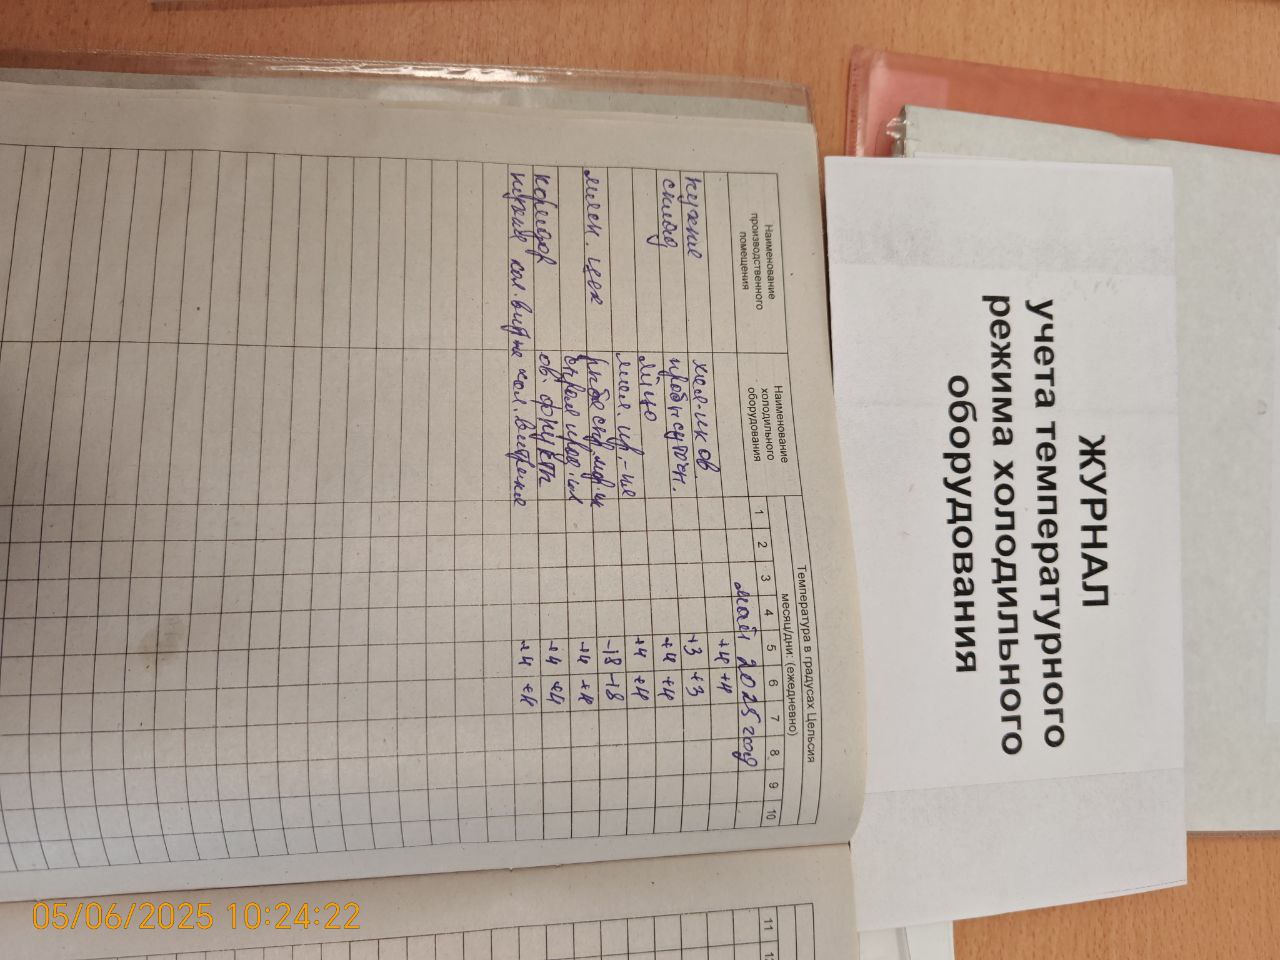 ЖУРНАЛ
учета температурного
режима холодильного
оборудования
Наименование
производственного
помещения
Наименование
холодильного
оборудования
Температура в градусах Цельсия
месяц/дни: (ежедневно)
1 2 3 4 5 6 7 8 9 10
май 2025 год
+4 +4
кухня хол-ик ов. +3 +3
склад +4 +4
+4 +4
-18 -18
мясн. цех +4 +4
коридор ов. фрукты +4 +4
хол. витрина +4 +4
11
05/06/2025 10:24:22